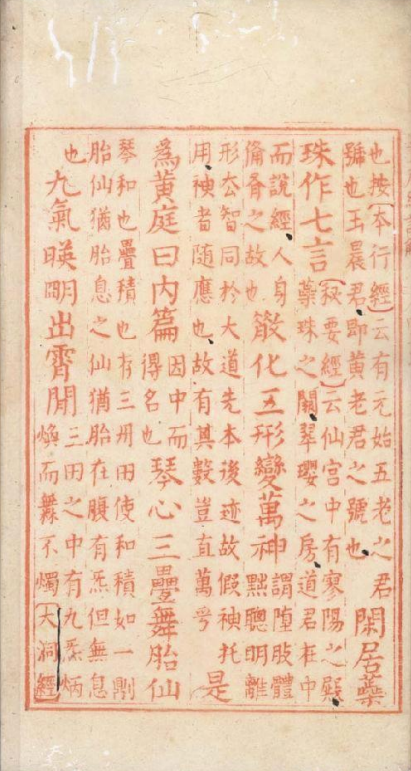 也按本行經云有元始五老之君
號也玉晨君即黃老君之號也
閑居蘂
珠作七言
秘要經云仙宮中有寥陽之殿
蘂珠之闕翠瓔之房道君在中
而說經人身
備眘之故也
散化五形變萬神
謂墮肢體
黜聰明離
形去智同於大道先本後迹故假神托
用神者隨應也故有其數豈直萬乎
是
為黃庭曰內篇
因中而
得名也
琴心三疊舞胎仙
琴和也疊積也存三丹田使和積如一則
胎仙猶胎息之仙猶胎在腹有炁但無息
也
九氣暎明出霄間
三田之中有九炁炳
煥而無不燭大洞經